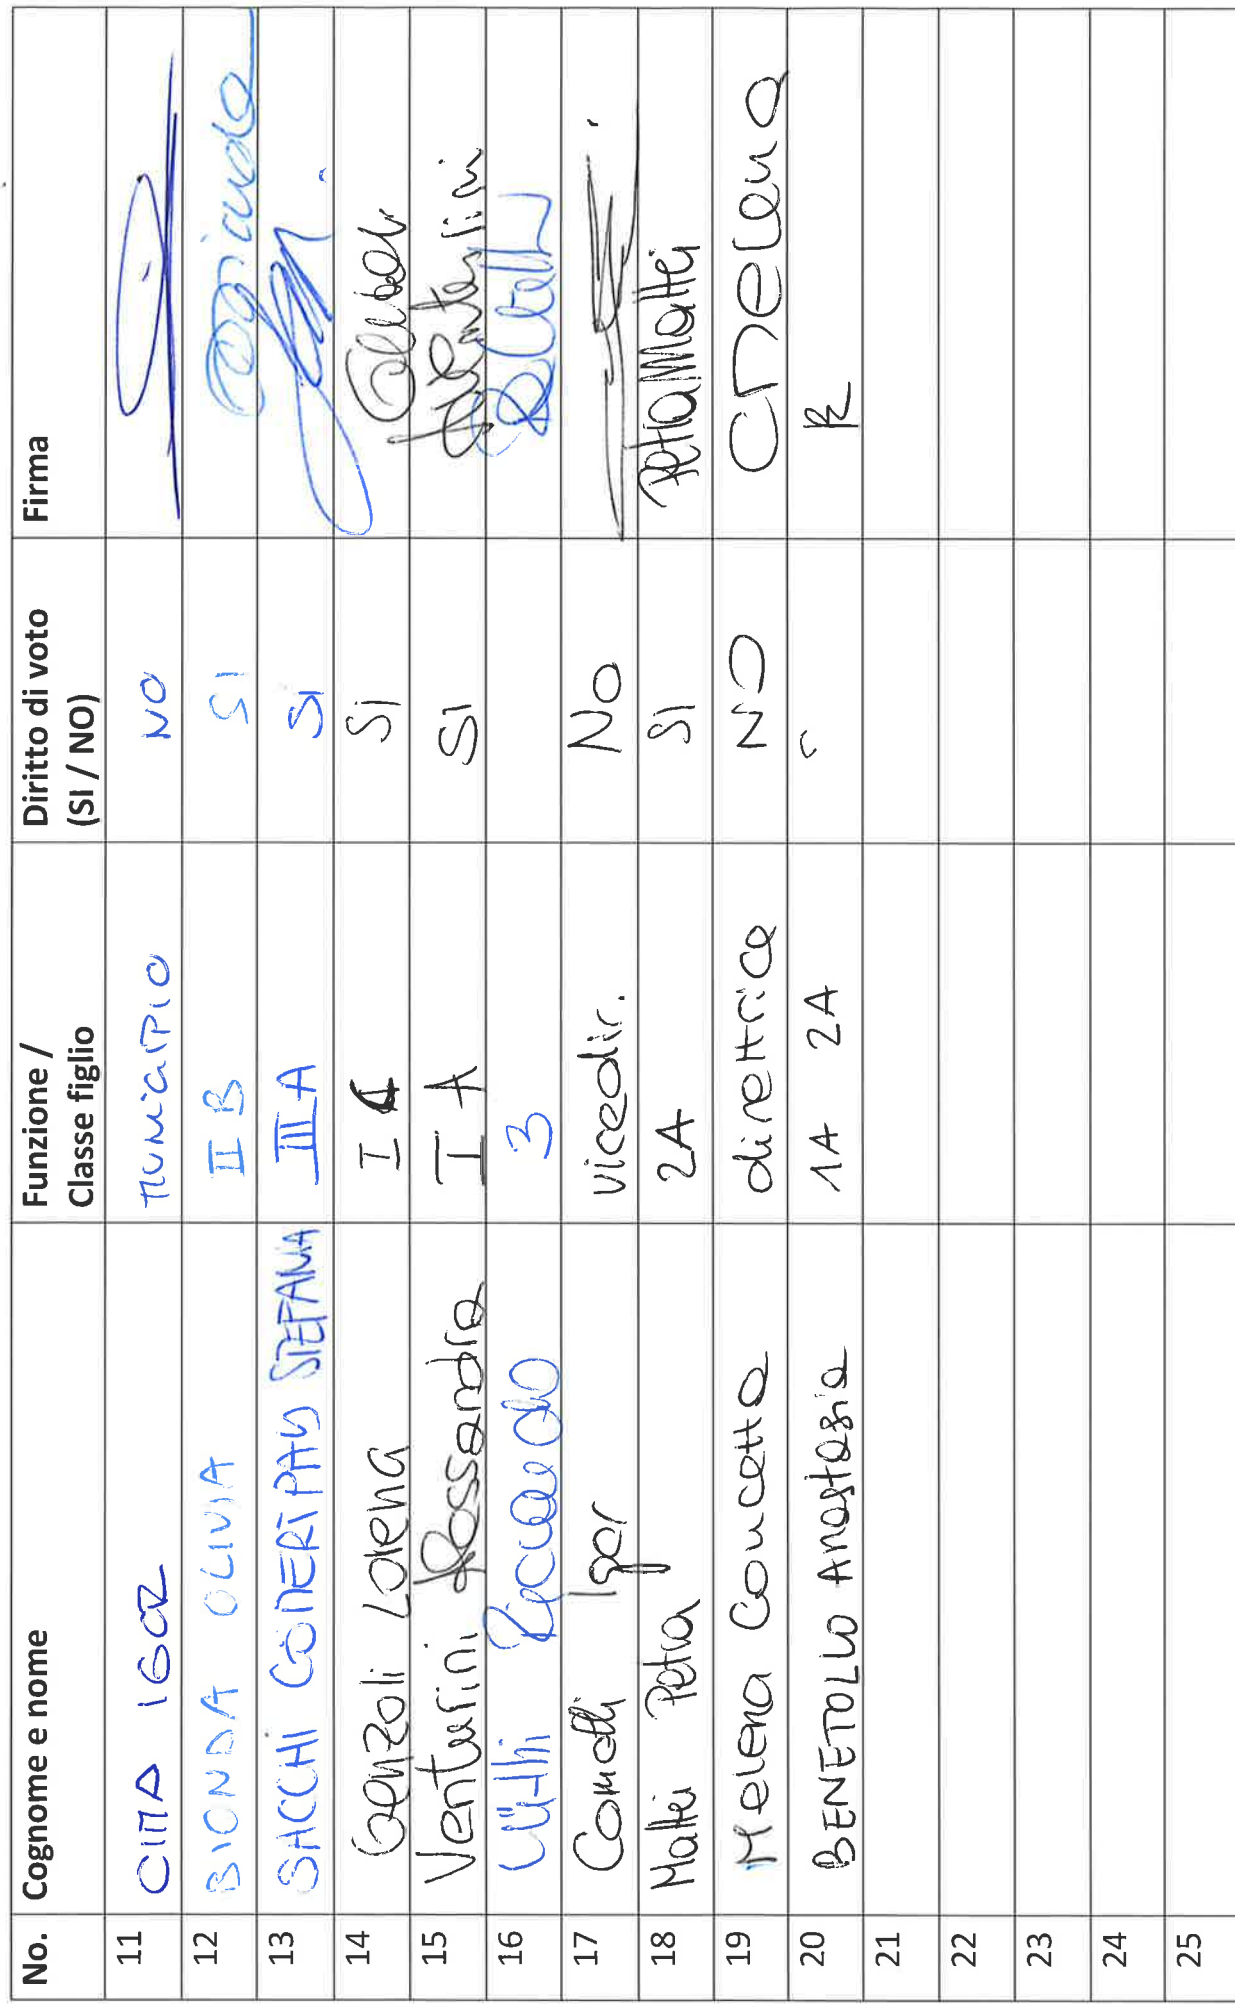 No. Cognome e nome Funzione / Classe figlio Diritto di voto (SI / NO) Firma
11 CIMA IGOR MUNICIPIO NO
12 BIONDA OLIVIA II B SI
13 SACCHI STEFANIA III A SI
14 Genzoli Lorena I SI
15 Venturini Alessandra I A SI Venturini
16 Riccardo 3
17 Comolli Igor Vicedir. No
18 Mattei Petra 2A SI Petra Mattei
19 Melena Concetta direttrice NO CMelena
20 BENETOLLO Anastasia 1A 2A
21
22
23
24
25